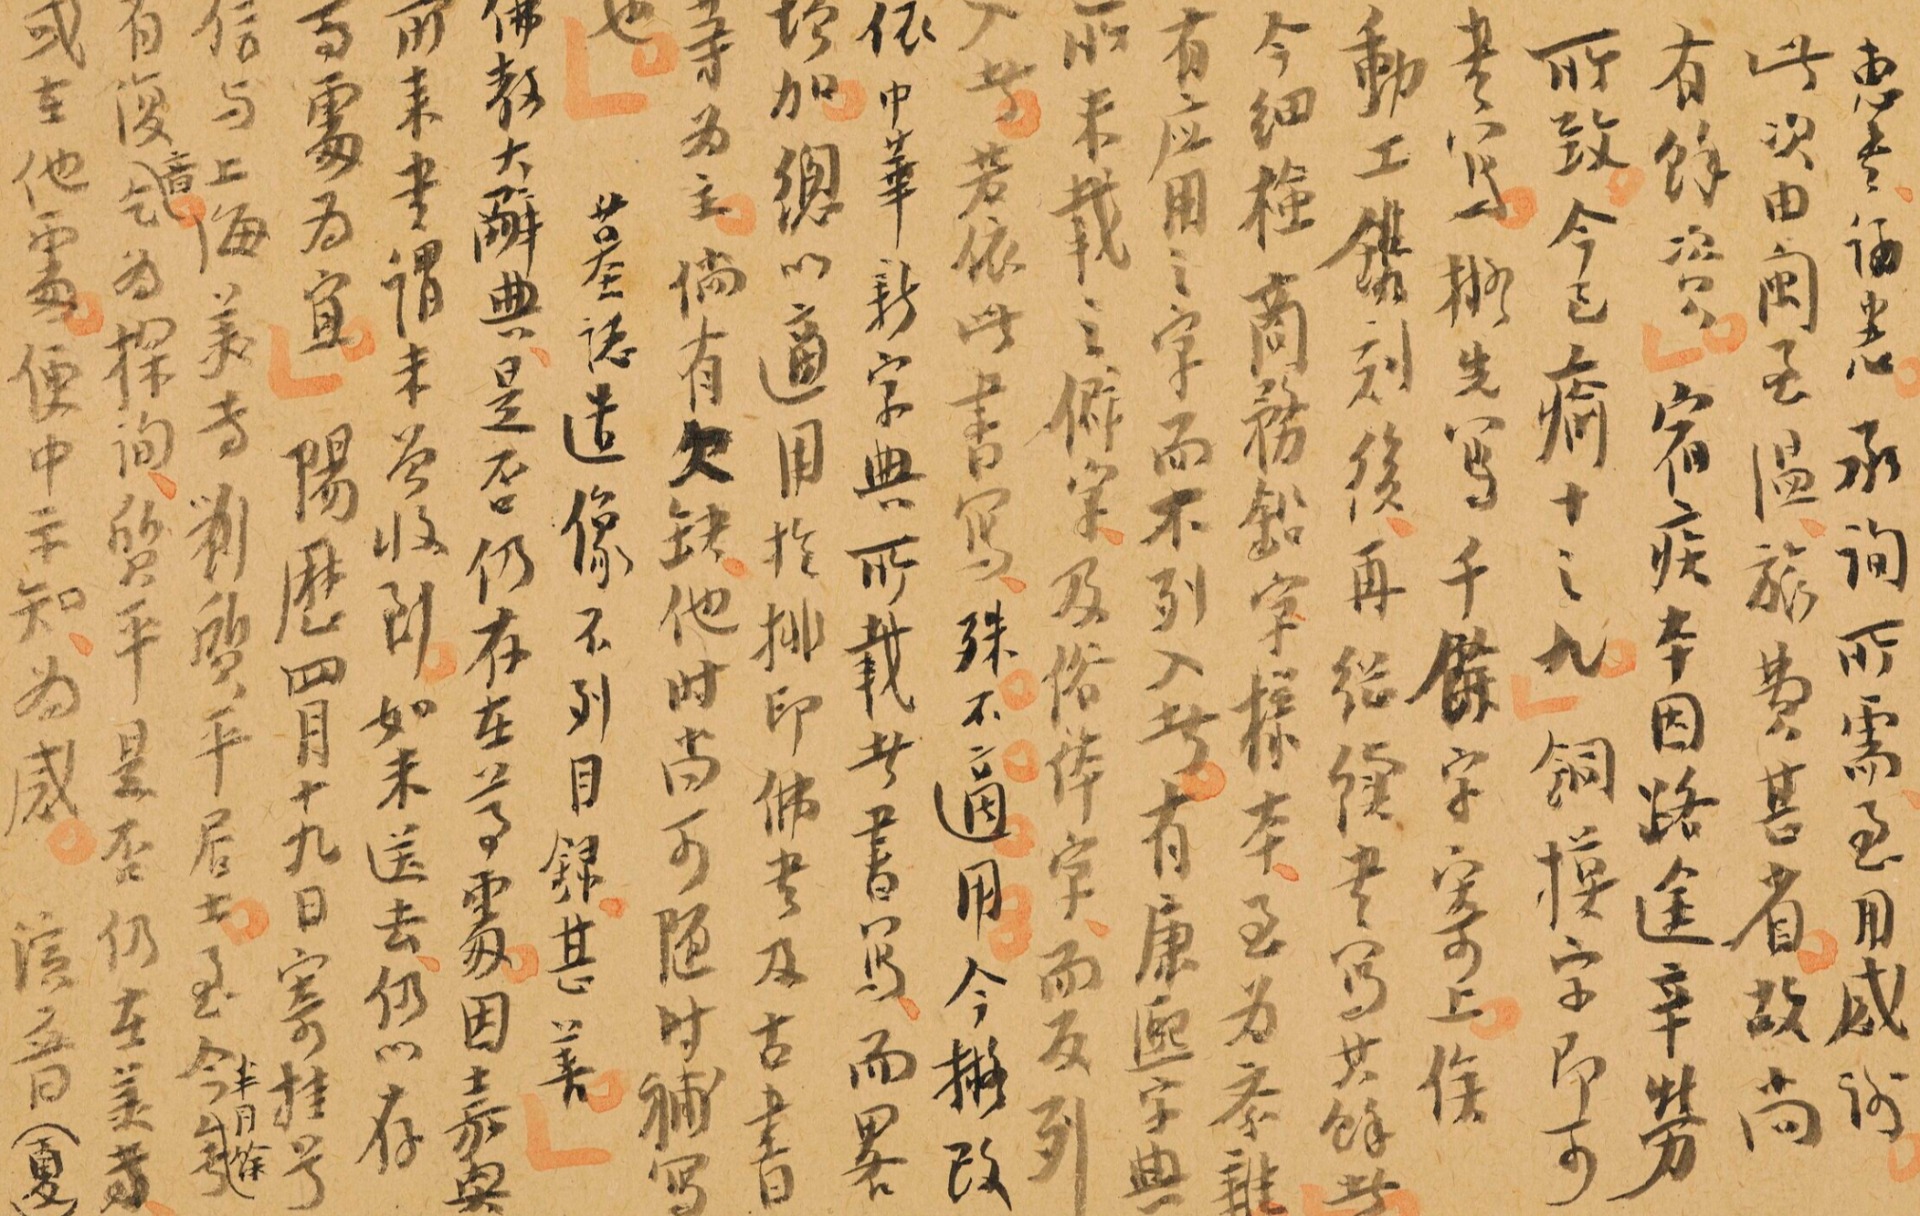 惠書誦悉。承詢所需、至用感謝。
此次由閩至溫、旅費甚省。故尚
有餘資。宿疾本因路途辛勞
所致。今已癒十之九。銅模字即可
書寫。擬先寫千餘字寄上。俟
動工鐫刻後、再繼續書寫其餘。此
今細檢商務鉛字樣本、至為雜
有應用之字而不列入者。有康熙字典
所未載之僻字、及俗體字、而反列
入者。若依此書寫、殊不適用。今擬改
依中華新字典所載者書寫、而畧
增加。總以適用於排印佛書及古書
等為主。倘有欠缺、他時尚可隨時補寫
也。
苦荃誌造像不列目錄、甚善。
佛教大辭典、是否仍存在尊處。因嘉興
前來書謂未曾收到。如未送去、仍以存
尊處為宜。陽曆四月十九日寄挂号
信与上海美专劉質平居士。至今半月餘
有復音。乞為探詢、質平是否仍在美专、
或在他處。便中示知、為感。演音（夏